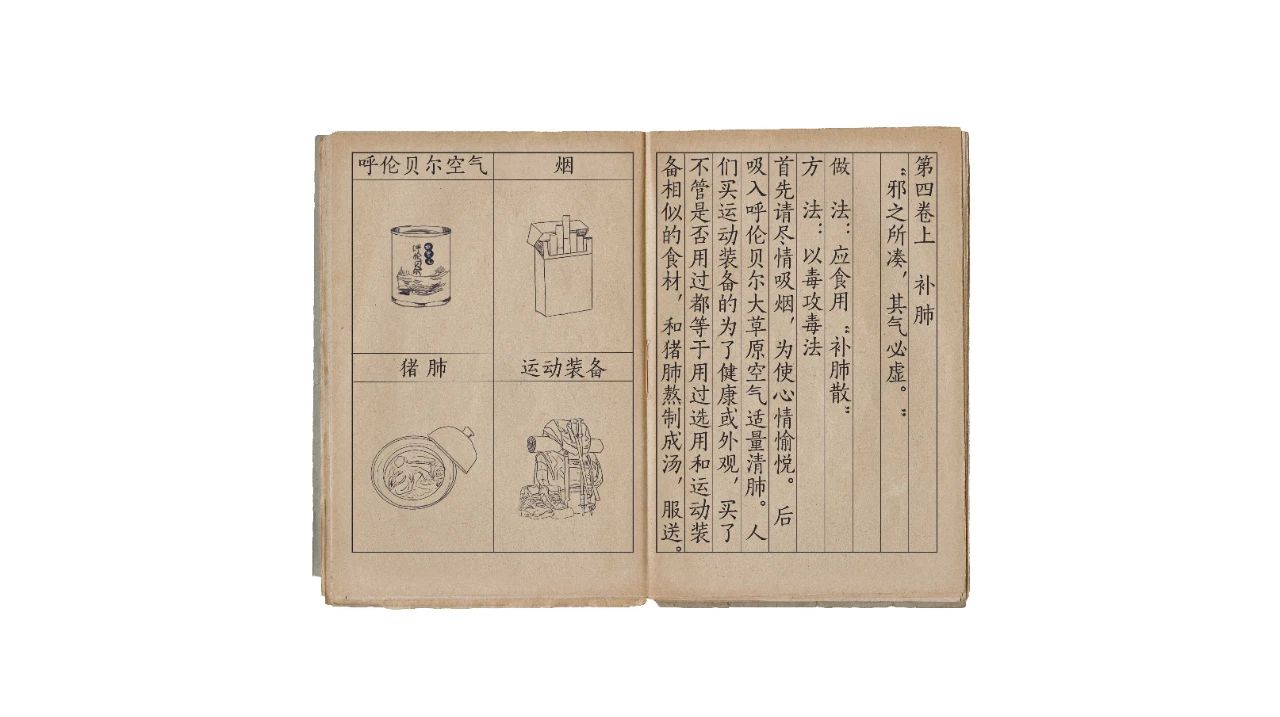 第四卷上 补肺
“邪之所凑，其气必虚。”
做 法：应食用“补肺散”
方 法：以毒攻毒法
首先请尽情吸烟，为使心情愉悦。后
吸入呼伦贝尔大草原空气适量清肺。人
们买运动装备的为了健康或外观，买了
不管是否用过都等于用过选用和运动装
备相似的食材，和猪肺熬制成汤，服送。
呼伦贝尔空气
烟
呼伦贝尔
猪肺
运动装备